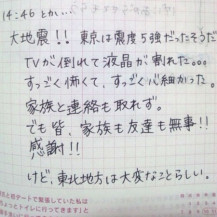 14:46 とか...
大地震!! 東京は震度5強だったそうだ
TVが倒れて液晶が割れた。。。
すっごく怖くて、すっごく心細かった。
家族と連絡も取れず。
でも皆、家族も友達も無事!!
感謝!!
けど、東北地方は大変なことらしい。